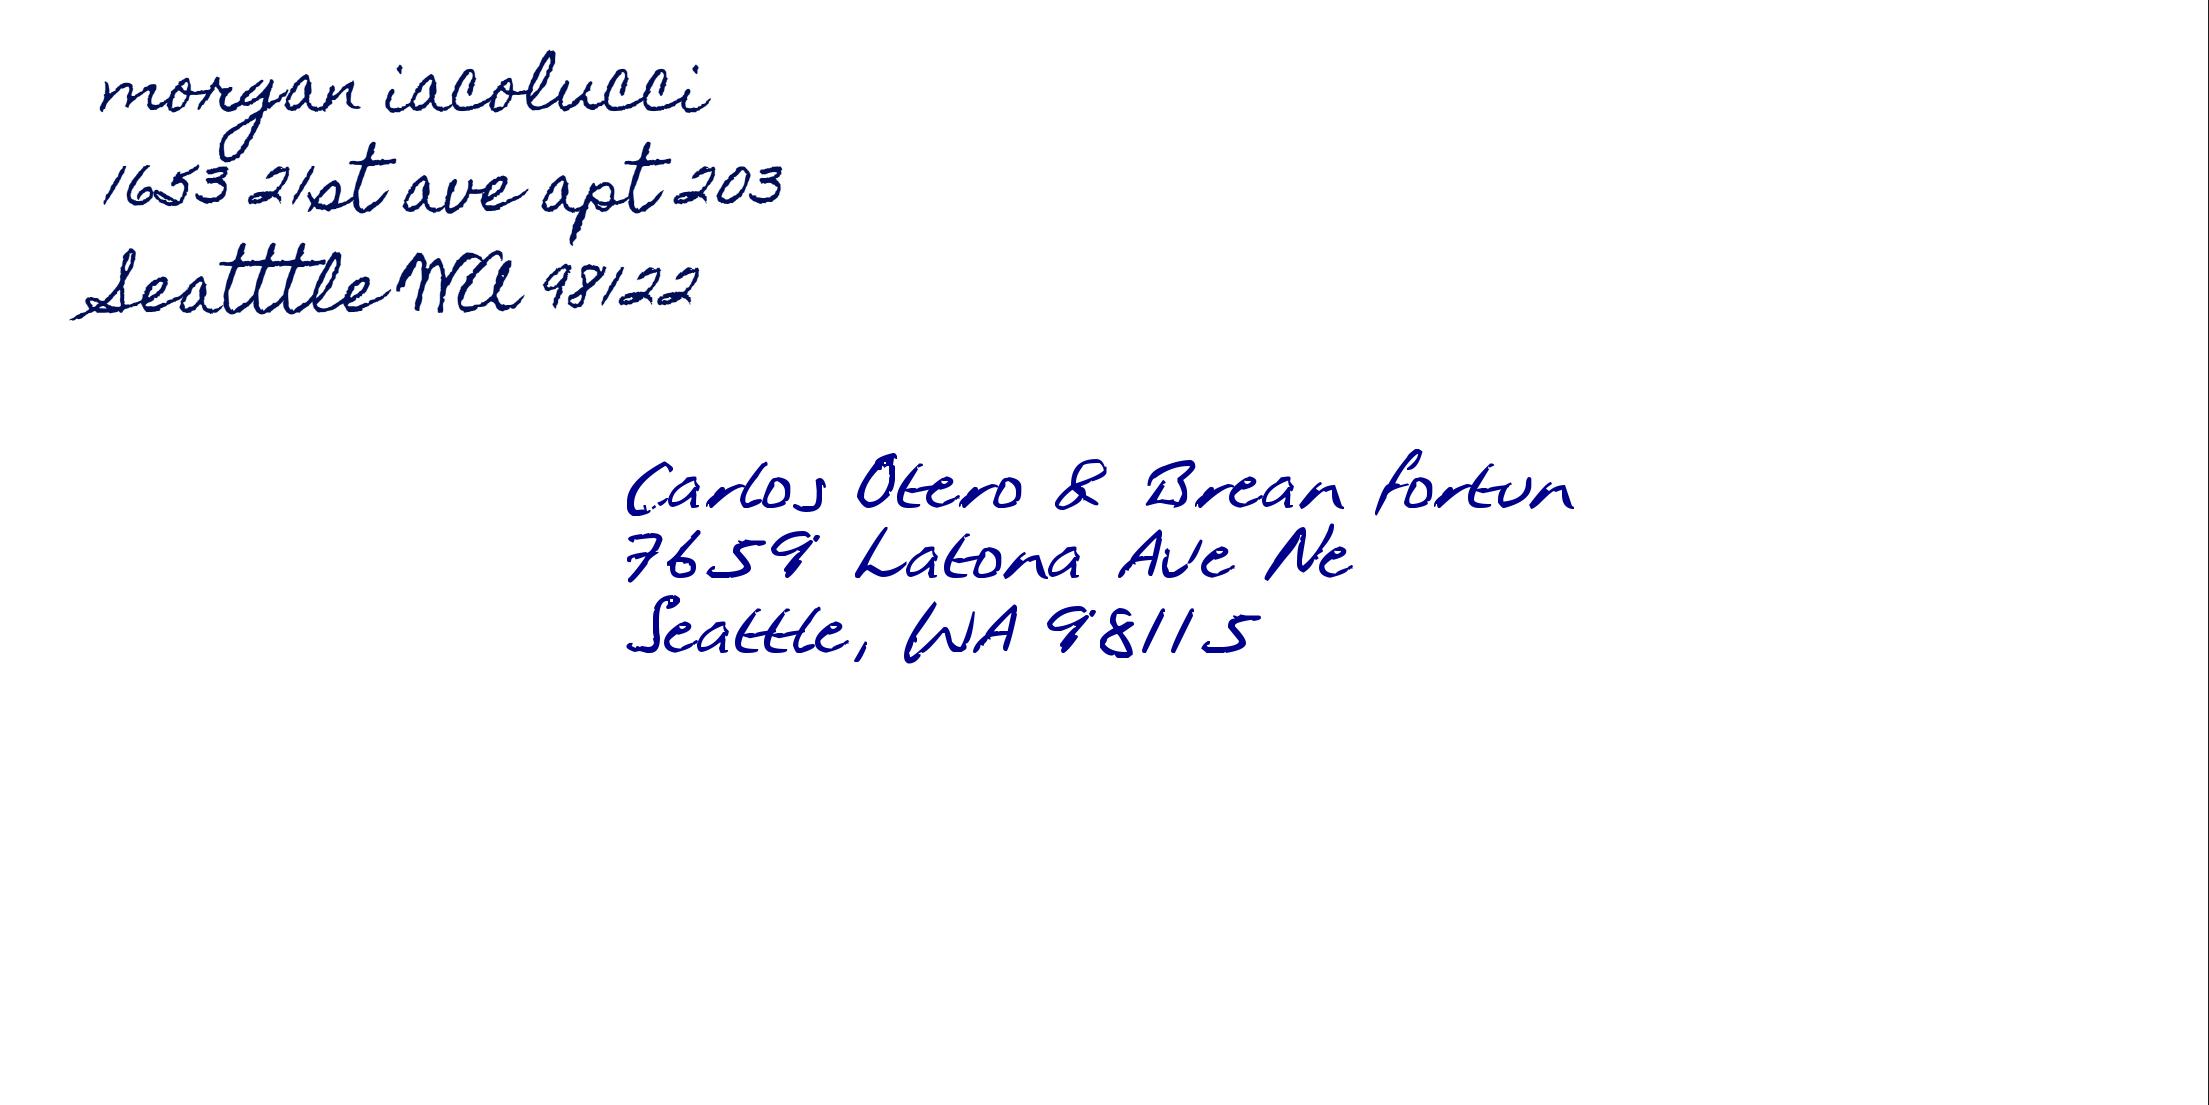 morgan iacolucci
1653 21st ave apt 203
Seatttle WA 98122
Carlos Otero & Brean fortun
7659 Latona Ave Ne
Seattle, WA 98115